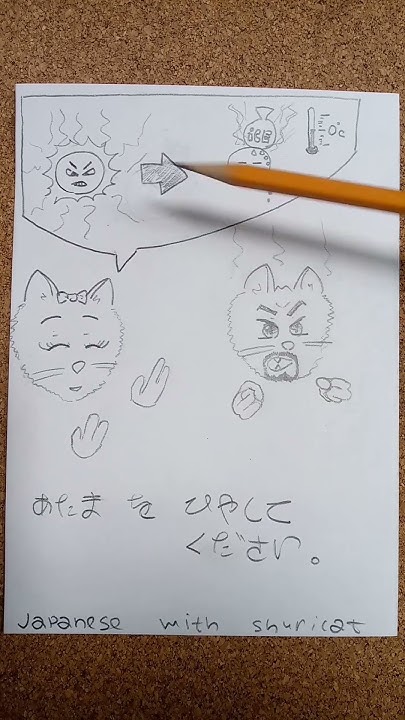 0℃
あたま を ひやして
ください。
Japanese with shuricat